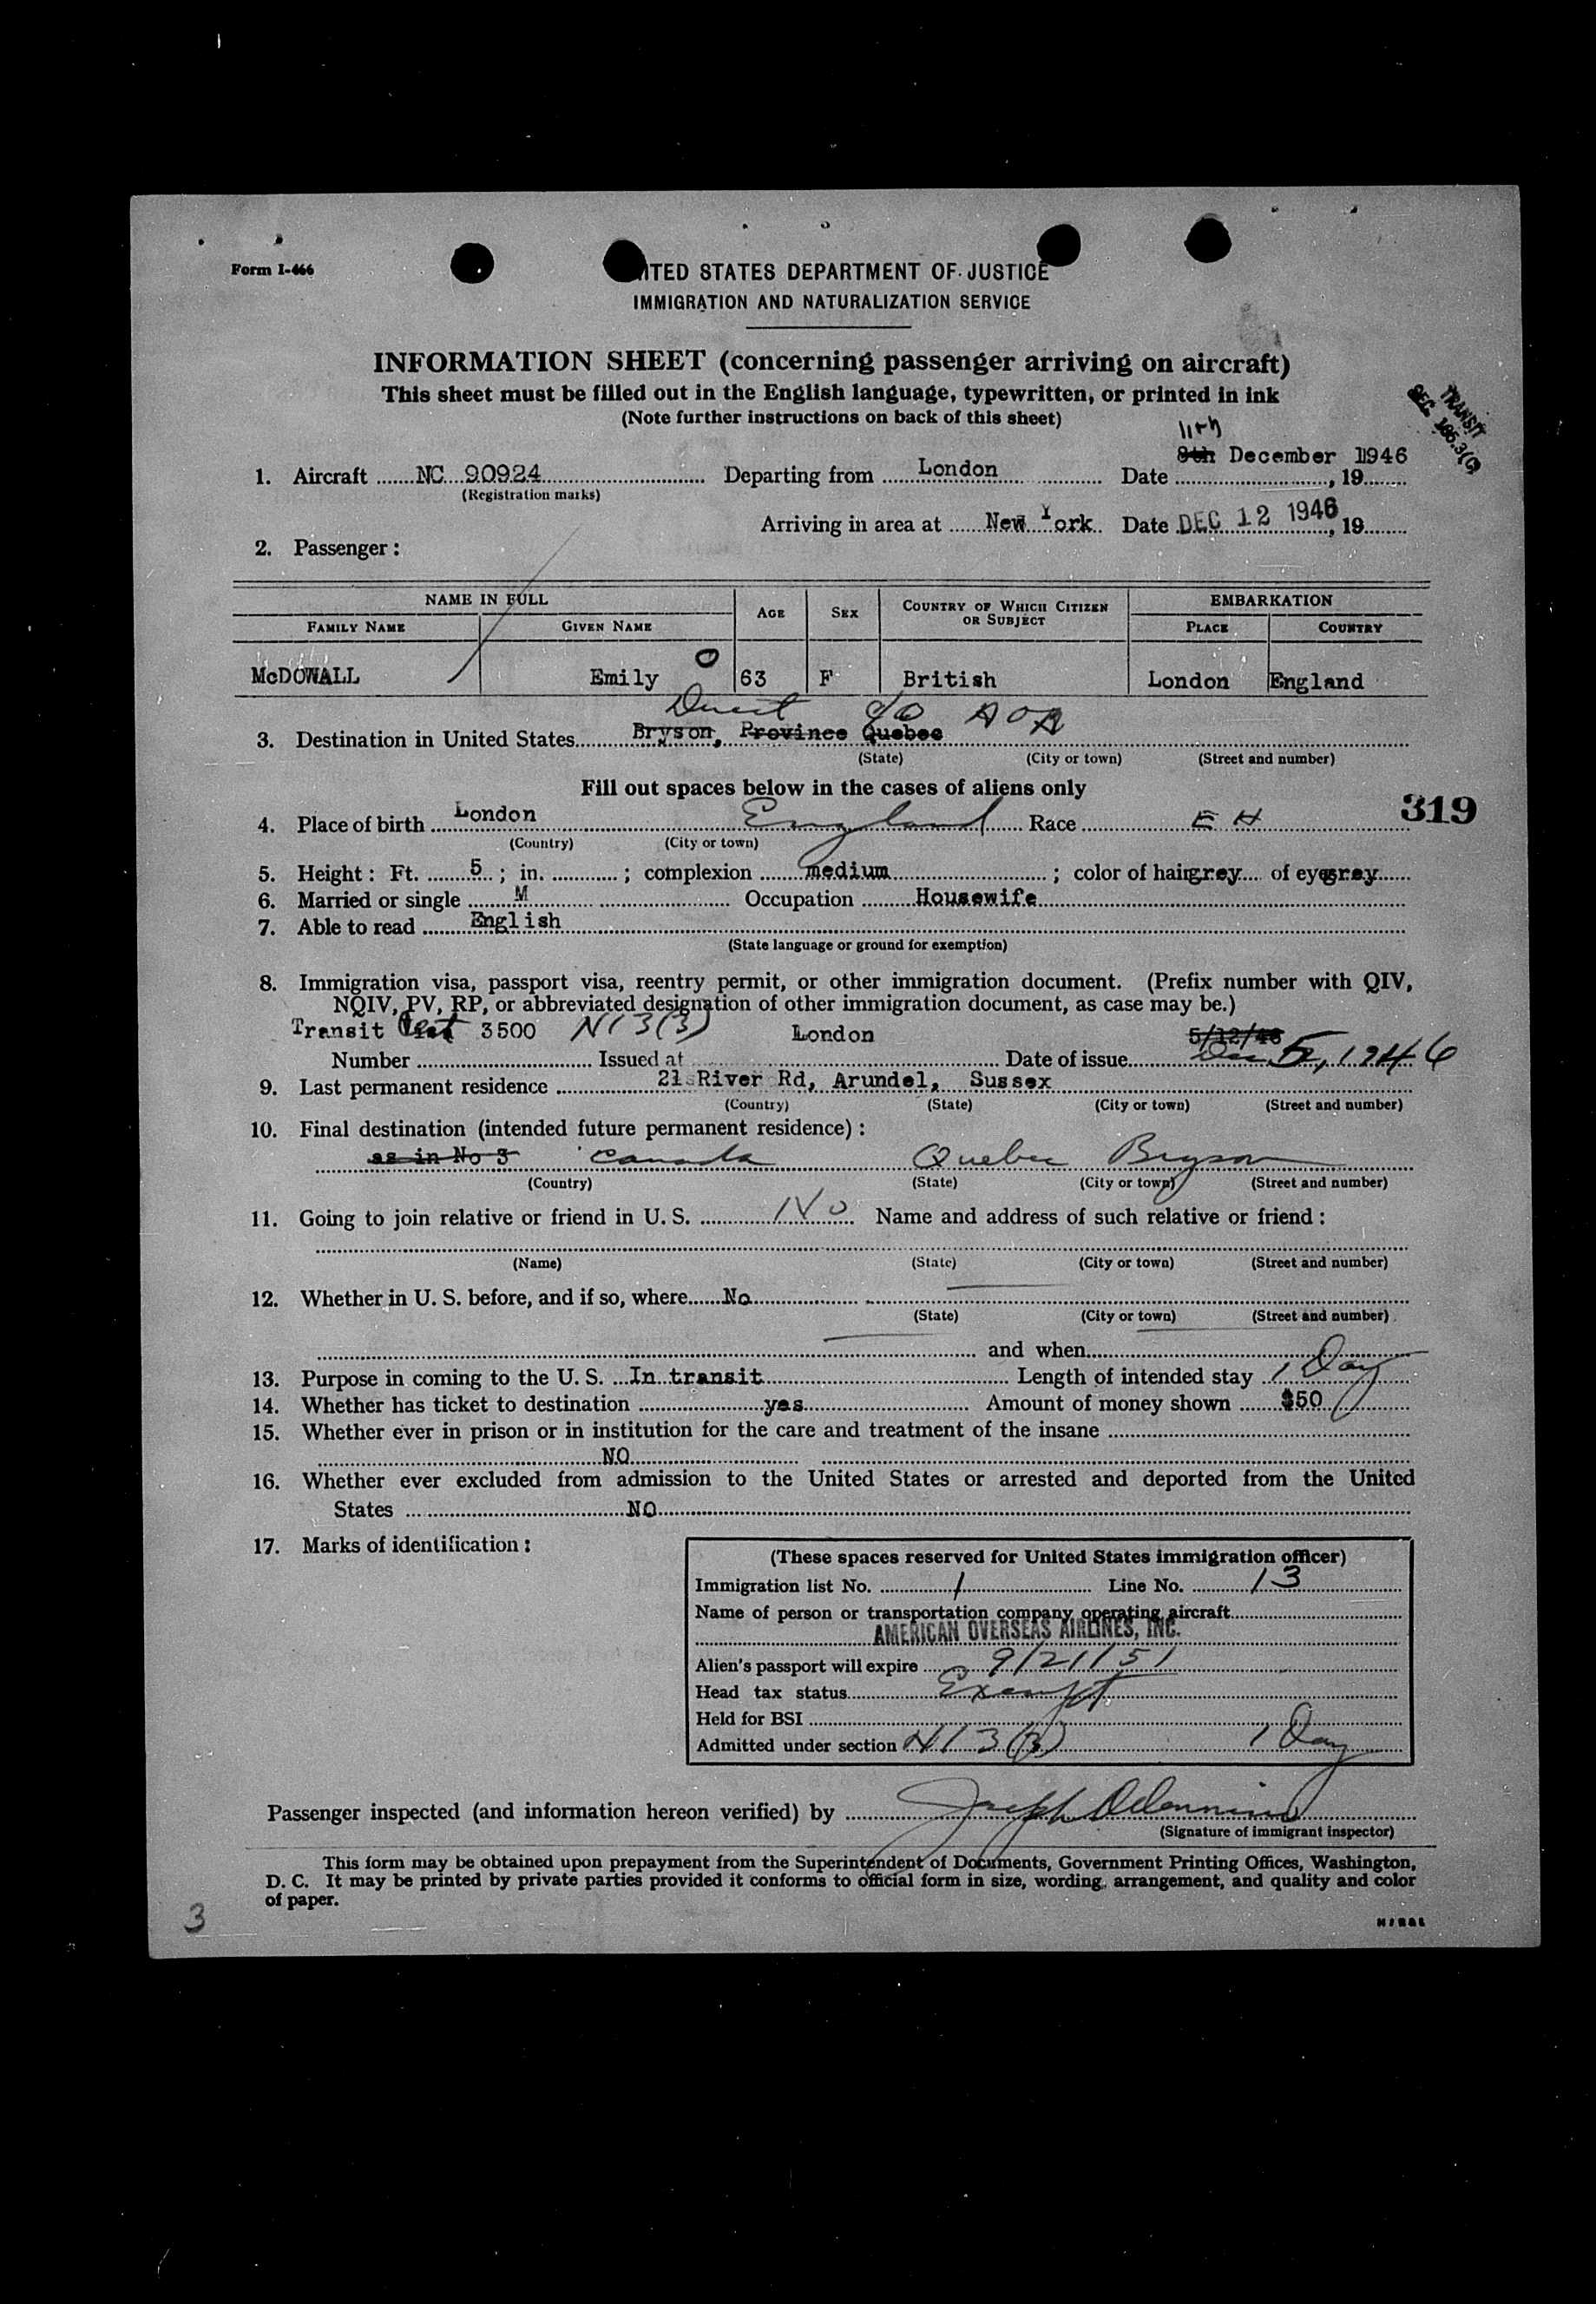 Form I-466
ITED STATES DEPARTMENT OF JUSTICE
IMMIGRATION AND NATURALIZATION SERVICE
INFORMATION SHEET (concerning passenger arriving on aircraft)
This sheet must be filled out in the English language, typewritten, or printed in ink
(Note further instructions on back of this sheet)
TRANSIT
SEC 186.3(G)
11th
1. Aircraft NC 90924 Departing from London Date 8th December 1946, 19
(Registration marks)
Arriving in area at New York Date DEC 12 1946, 19
2. Passenger:
NAME IN FULL AGE SEX COUNTRY OF WHICH CITIZEN OR SUBJECT EMBARKATION
FAMILY NAME GIVEN NAME PLACE COUNTRY
McDOWALL Emily O 63 F British London England
c/o AOA
3. Destination in United States Bryson, Province Quebec
(State) (City or town) (Street and number)
Fill out spaces below in the cases of aliens only
319
4. Place of birth London England Race E H
(Country) (City or town)
5. Height: Ft. 5; in. ; complexion medium; color of hair grey of eyes grey
6. Married or single M Occupation Housewife
7. Able to read English
(State language or ground for exemption)
8. Immigration visa, passport visa, reentry permit, or other immigration document. (Prefix number with QIV,
NQIV, PV, RP, or abbreviated designation of other immigration document, as case may be.)
Transit Cert 3500 N13(3) London 5/12/46
Number Issued at Date of issue Dec 5, 1946
9. Last permanent residence 21 River Rd, Arundel, Sussex
(Country) (State) (City or town) (Street and number)
10. Final destination (intended future permanent residence):
as in No 3 Canada Quebec Bryson
(Country) (State) (City or town) (Street and number)
11. Going to join relative or friend in U. S. No Name and address of such relative or friend:
(Name) (State) (City or town) (Street and number)
12. Whether in U. S. before, and if so, where No
(State) (City or town) (Street and number)
and when
13. Purpose in coming to the U. S. In transit Length of intended stay 1 Day
14. Whether has ticket to destination yes Amount of money shown $50
15. Whether ever in prison or in institution for the care and treatment of the insane
NO
16. Whether ever excluded from admission to the United States or arrested and deported from the United
States NO
17. Marks of identification:
(These spaces reserved for United States immigration officer)
Immigration list No. 1 Line No. 13
Name of person or transportation company operating aircraft
AMERICAN OVERSEAS AIRLINES, INC.
Alien's passport will expire 9/21/51
Head tax status Exempt
Held for BSI
Admitted under section N13(3) 1 Day
Passenger inspected (and information hereon verified) by Joseph
(Signature of immigrant inspector)
This form may be obtained upon prepayment from the Superintendent of Documents, Government Printing Offices, Washington,
D. C. It may be printed by private parties provided it conforms to official form in size, wording, arrangement, and quality and color
of paper.
3